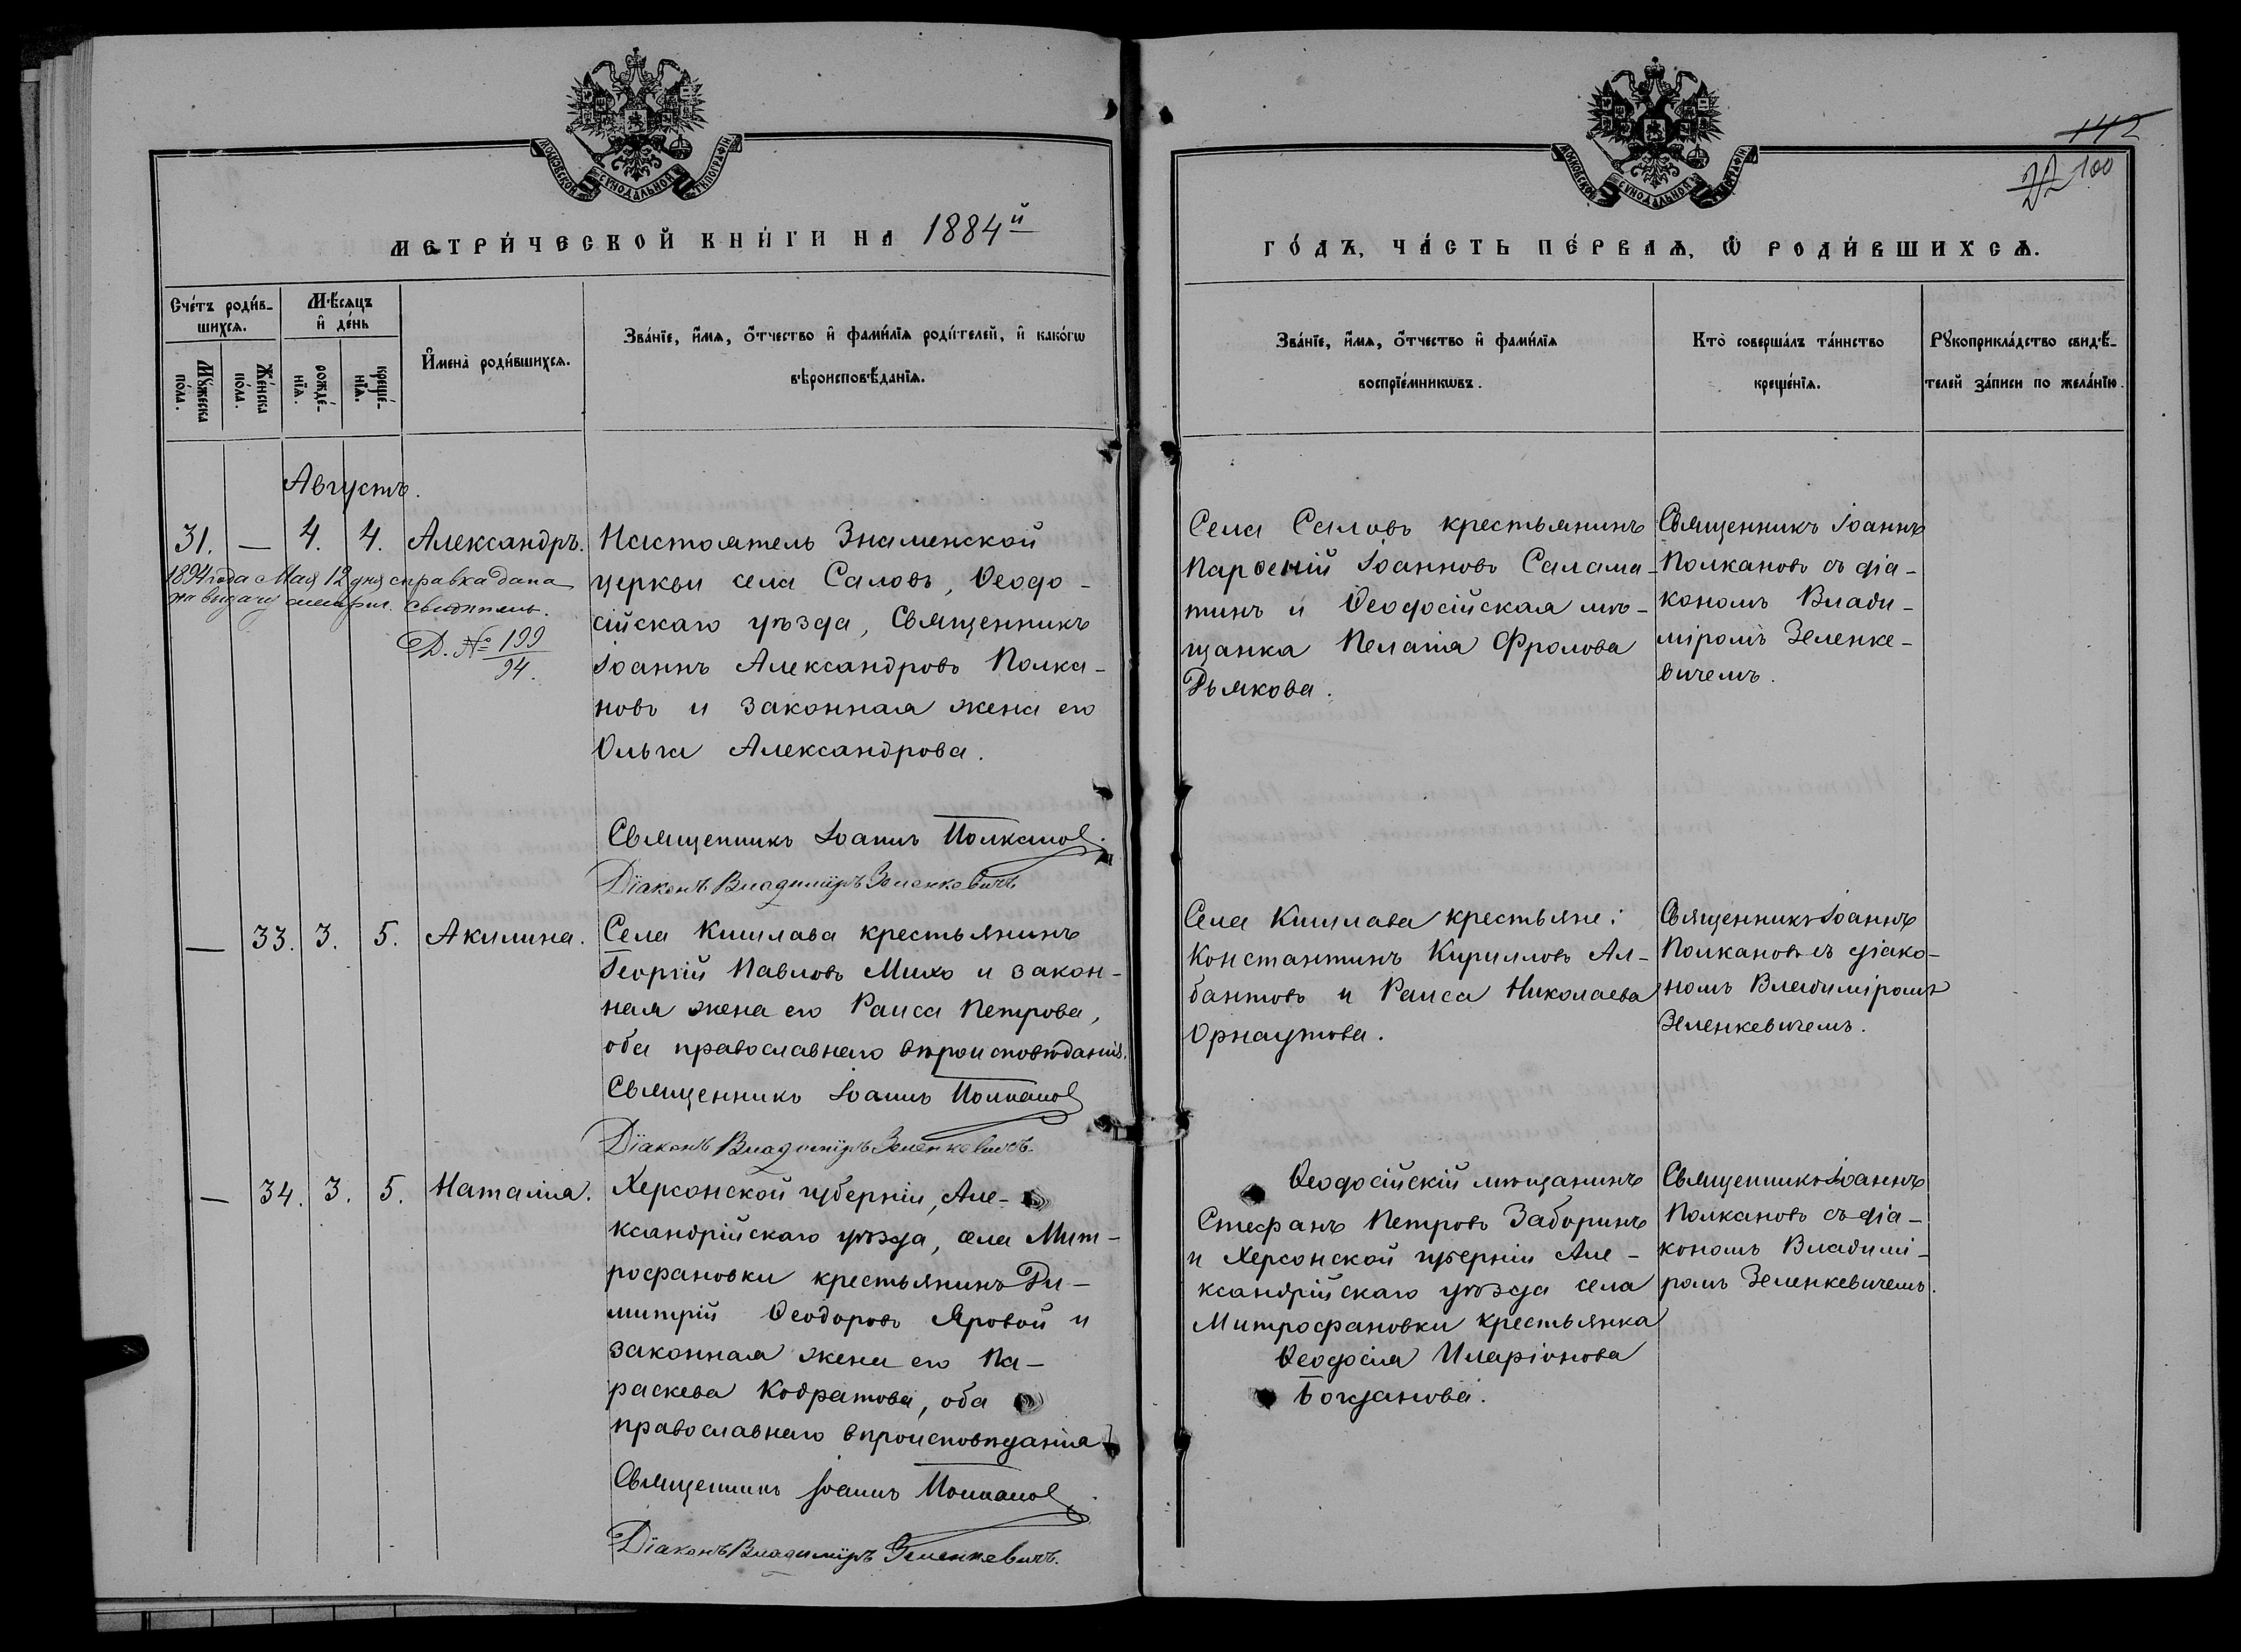 МОСКОВСКОЙ СУНОДАЛЬНОЙ ТИПОГРАФІИ
МЕТРИ́ЧЕСКОЙ КНИ́ГИ НА 1884й
Сче́тъ роди́в-
шихсѧ.
Мꙋ́жеска
по́ла.
Же́нска
по́ла.
Мѣ́сѧцъ
и҆ де́нь
рожде́-
нїѧ.
креще́-
нїѧ.
И҆мена̀ роди́вшихсѧ.
Зва́нїе, и҆́мѧ, ѻ҆́тчество и҆ фами́лїѧ роди́телей, и҆ како́гѡ
вѣроисповѣ́данїѧ.
Августъ.
31. — 4. 4. Александръ.
1894 года Мая 12 дня справка дана
на выдачу метрич. свидѣтель.
Д. № 199/94.
Настоятель Знаменской
церкви села Саловъ, Ѳеодо-
сійскаго уѣзда, Священникъ
Іоаннъ Александровъ Полка-
новъ и законная жена его
Ольга Александрова.
Священникъ Іоаннъ Полкановъ
Діаконъ Владиміръ Зеленкевичъ
— 33. 3. 5. Акилина.
Села Кишлава крестьянинъ
Георгій Павловъ Михо и закон-
ная жена его Раиса Петрова,
оба православнаго вѣроисповѣданія.
Священникъ Іоаннъ Полкановъ
Діаконъ Владиміръ Зеленкевичъ.
— 34. 3. 5. Наталія.
Херсонской губерніи, Але-
ксандрійскаго уѣзда, села Мит-
рофановки крестьянинъ Ди-
митрій Ѳеодоровъ Яровой и
законная жена его Па-
раскева Кодратова, оба
православнаго вѣроисповѣданія
Священникъ Іоаннъ Полкановъ
Діаконъ Владиміръ Зеленкевичъ.
142
100
МОСКОВСКОЙ СУНОДАЛЬНОЙ ТИПОГРАФІИ
ГО́ДЪ, ЧА́СТЬ ПЕ́РВАѦ, Ѽ РОДИ́ВШИХСѦ.
Зва́нїе, и҆́мѧ, ѻ҆́тчество и҆ фами́лїѧ
воспрїе́мникѡвъ.
Кто̀ соверша́лъ та́инство
креще́нїѧ.
Рꙋкоприкла́дство свидѣ́-
телей за́писи по жела́нїю.
Села Саловъ крестьянинъ
Парѳеній Іоанновъ Салама-
тинъ и Ѳеодосійская мѣ-
щанка Пелагія Фролова
Дьякова.
Священникъ Іоаннъ
Полкановъ съ діа-
кономъ Влади-
міромъ Зеленке-
вичемъ.
Села Кишлава крестьяне:
Константинъ Кирилловъ Ал-
бантовъ и Раиса Николаева
Орнаутова.
Священникъ Іоаннъ
Полкановъ съ діако-
номъ Владиміромъ
Зеленкевичемъ.
Ѳеодосійскій мѣщанинъ
Стефанъ Петровъ Заборинъ
и Херсонской губерніи Але-
ксандрійскаго уѣзда села
Митрофановки крестьянка
Ѳеодосія Иларіонова
Богданова.
Священникъ Іоаннъ
Полкановъ съ діа-
кономъ Владимі-
ромъ Зеленкевичемъ.